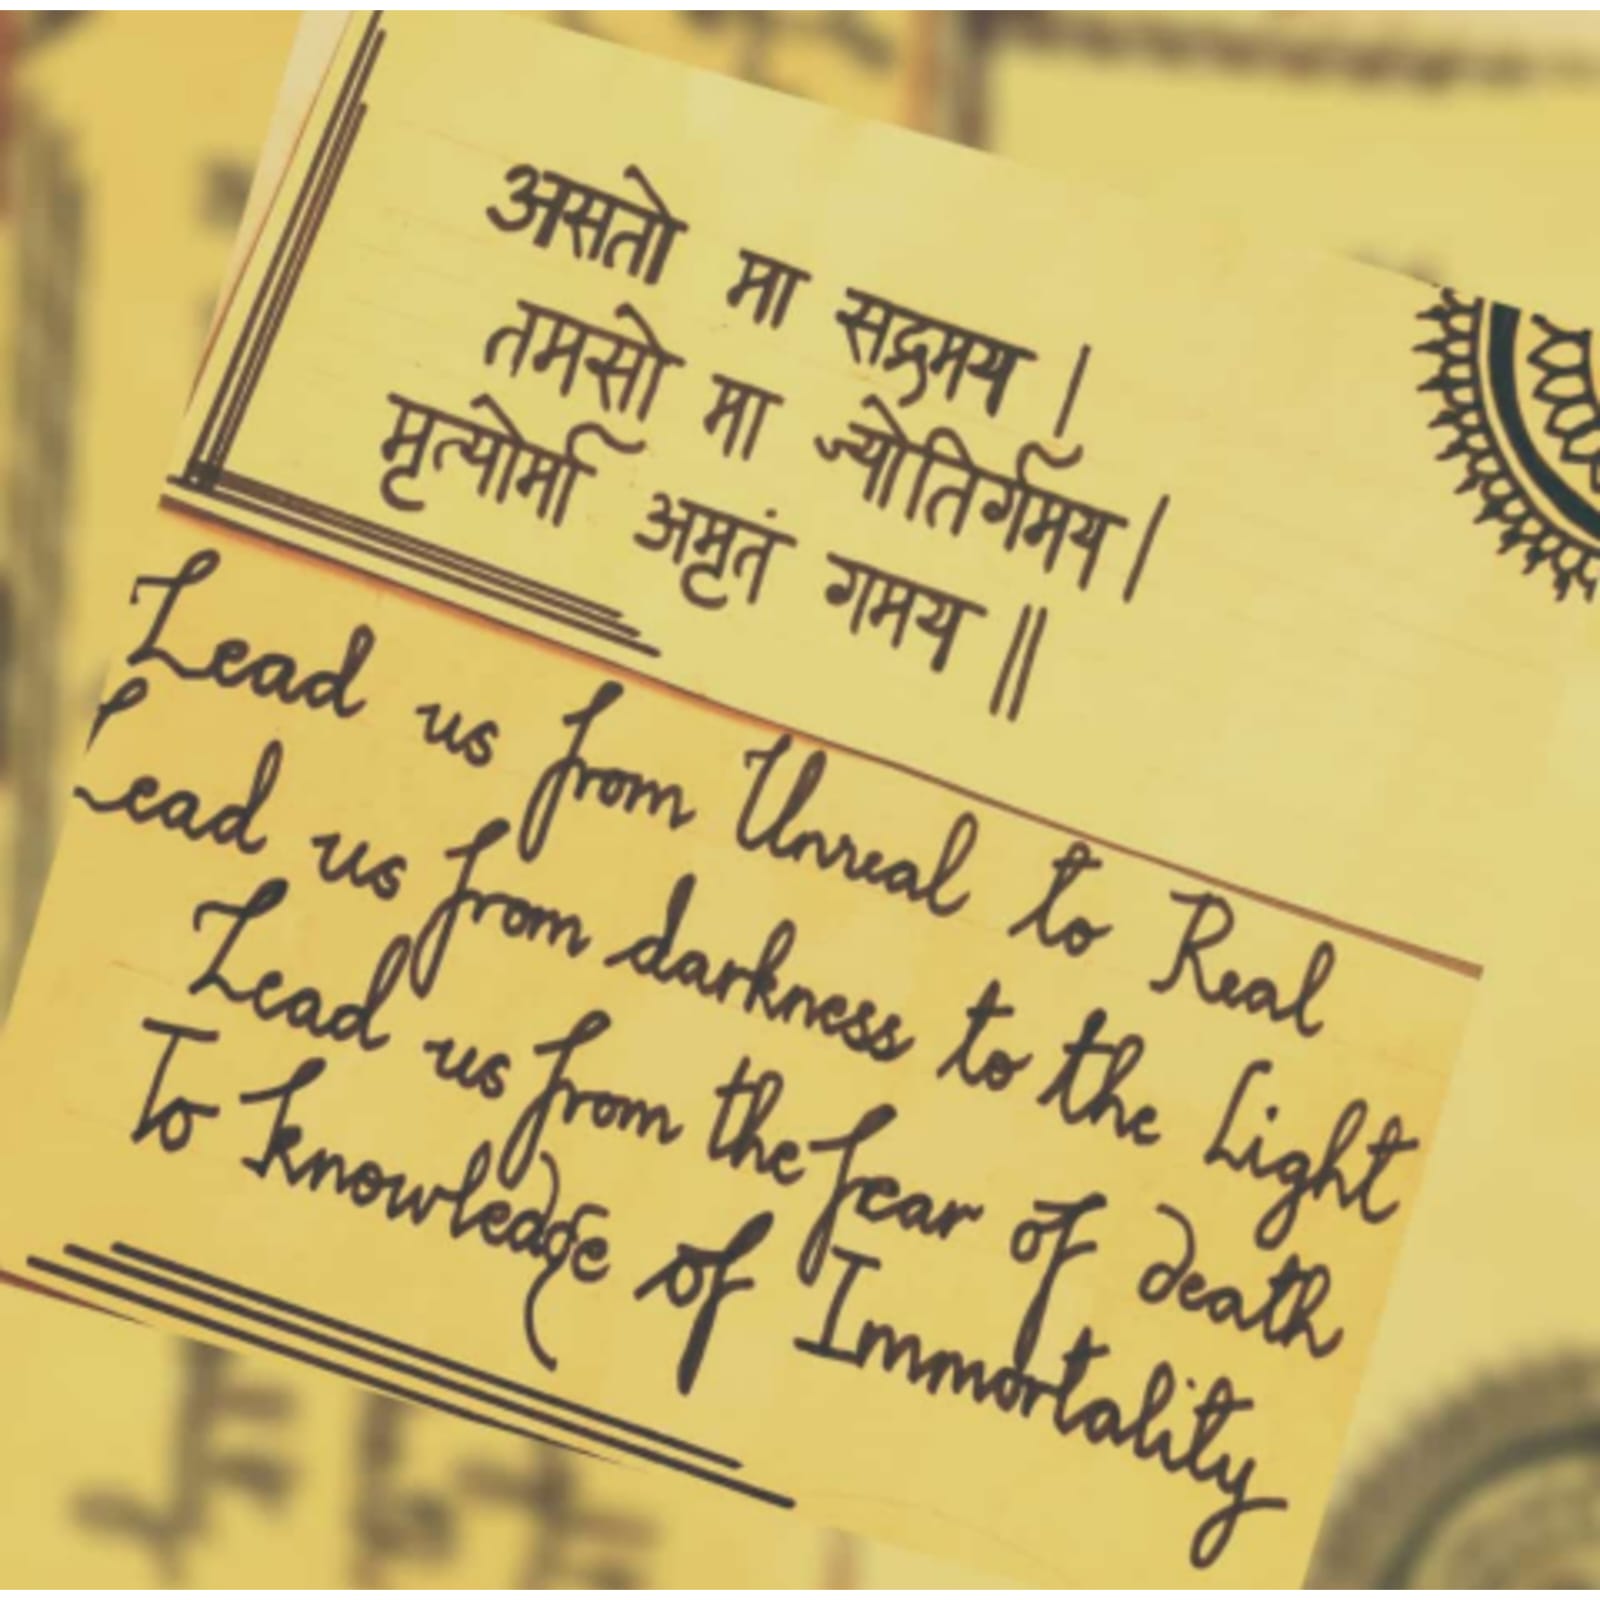 असतो मा सद्गमय ।
तमसो मा ज्योतिर्गमय ।
मृत्योर्मा अमृतं गमय ॥
Lead us from Unreal to Real
Lead us from darkness to the Light
Lead us from the fear of death
To knowledge of Immortality